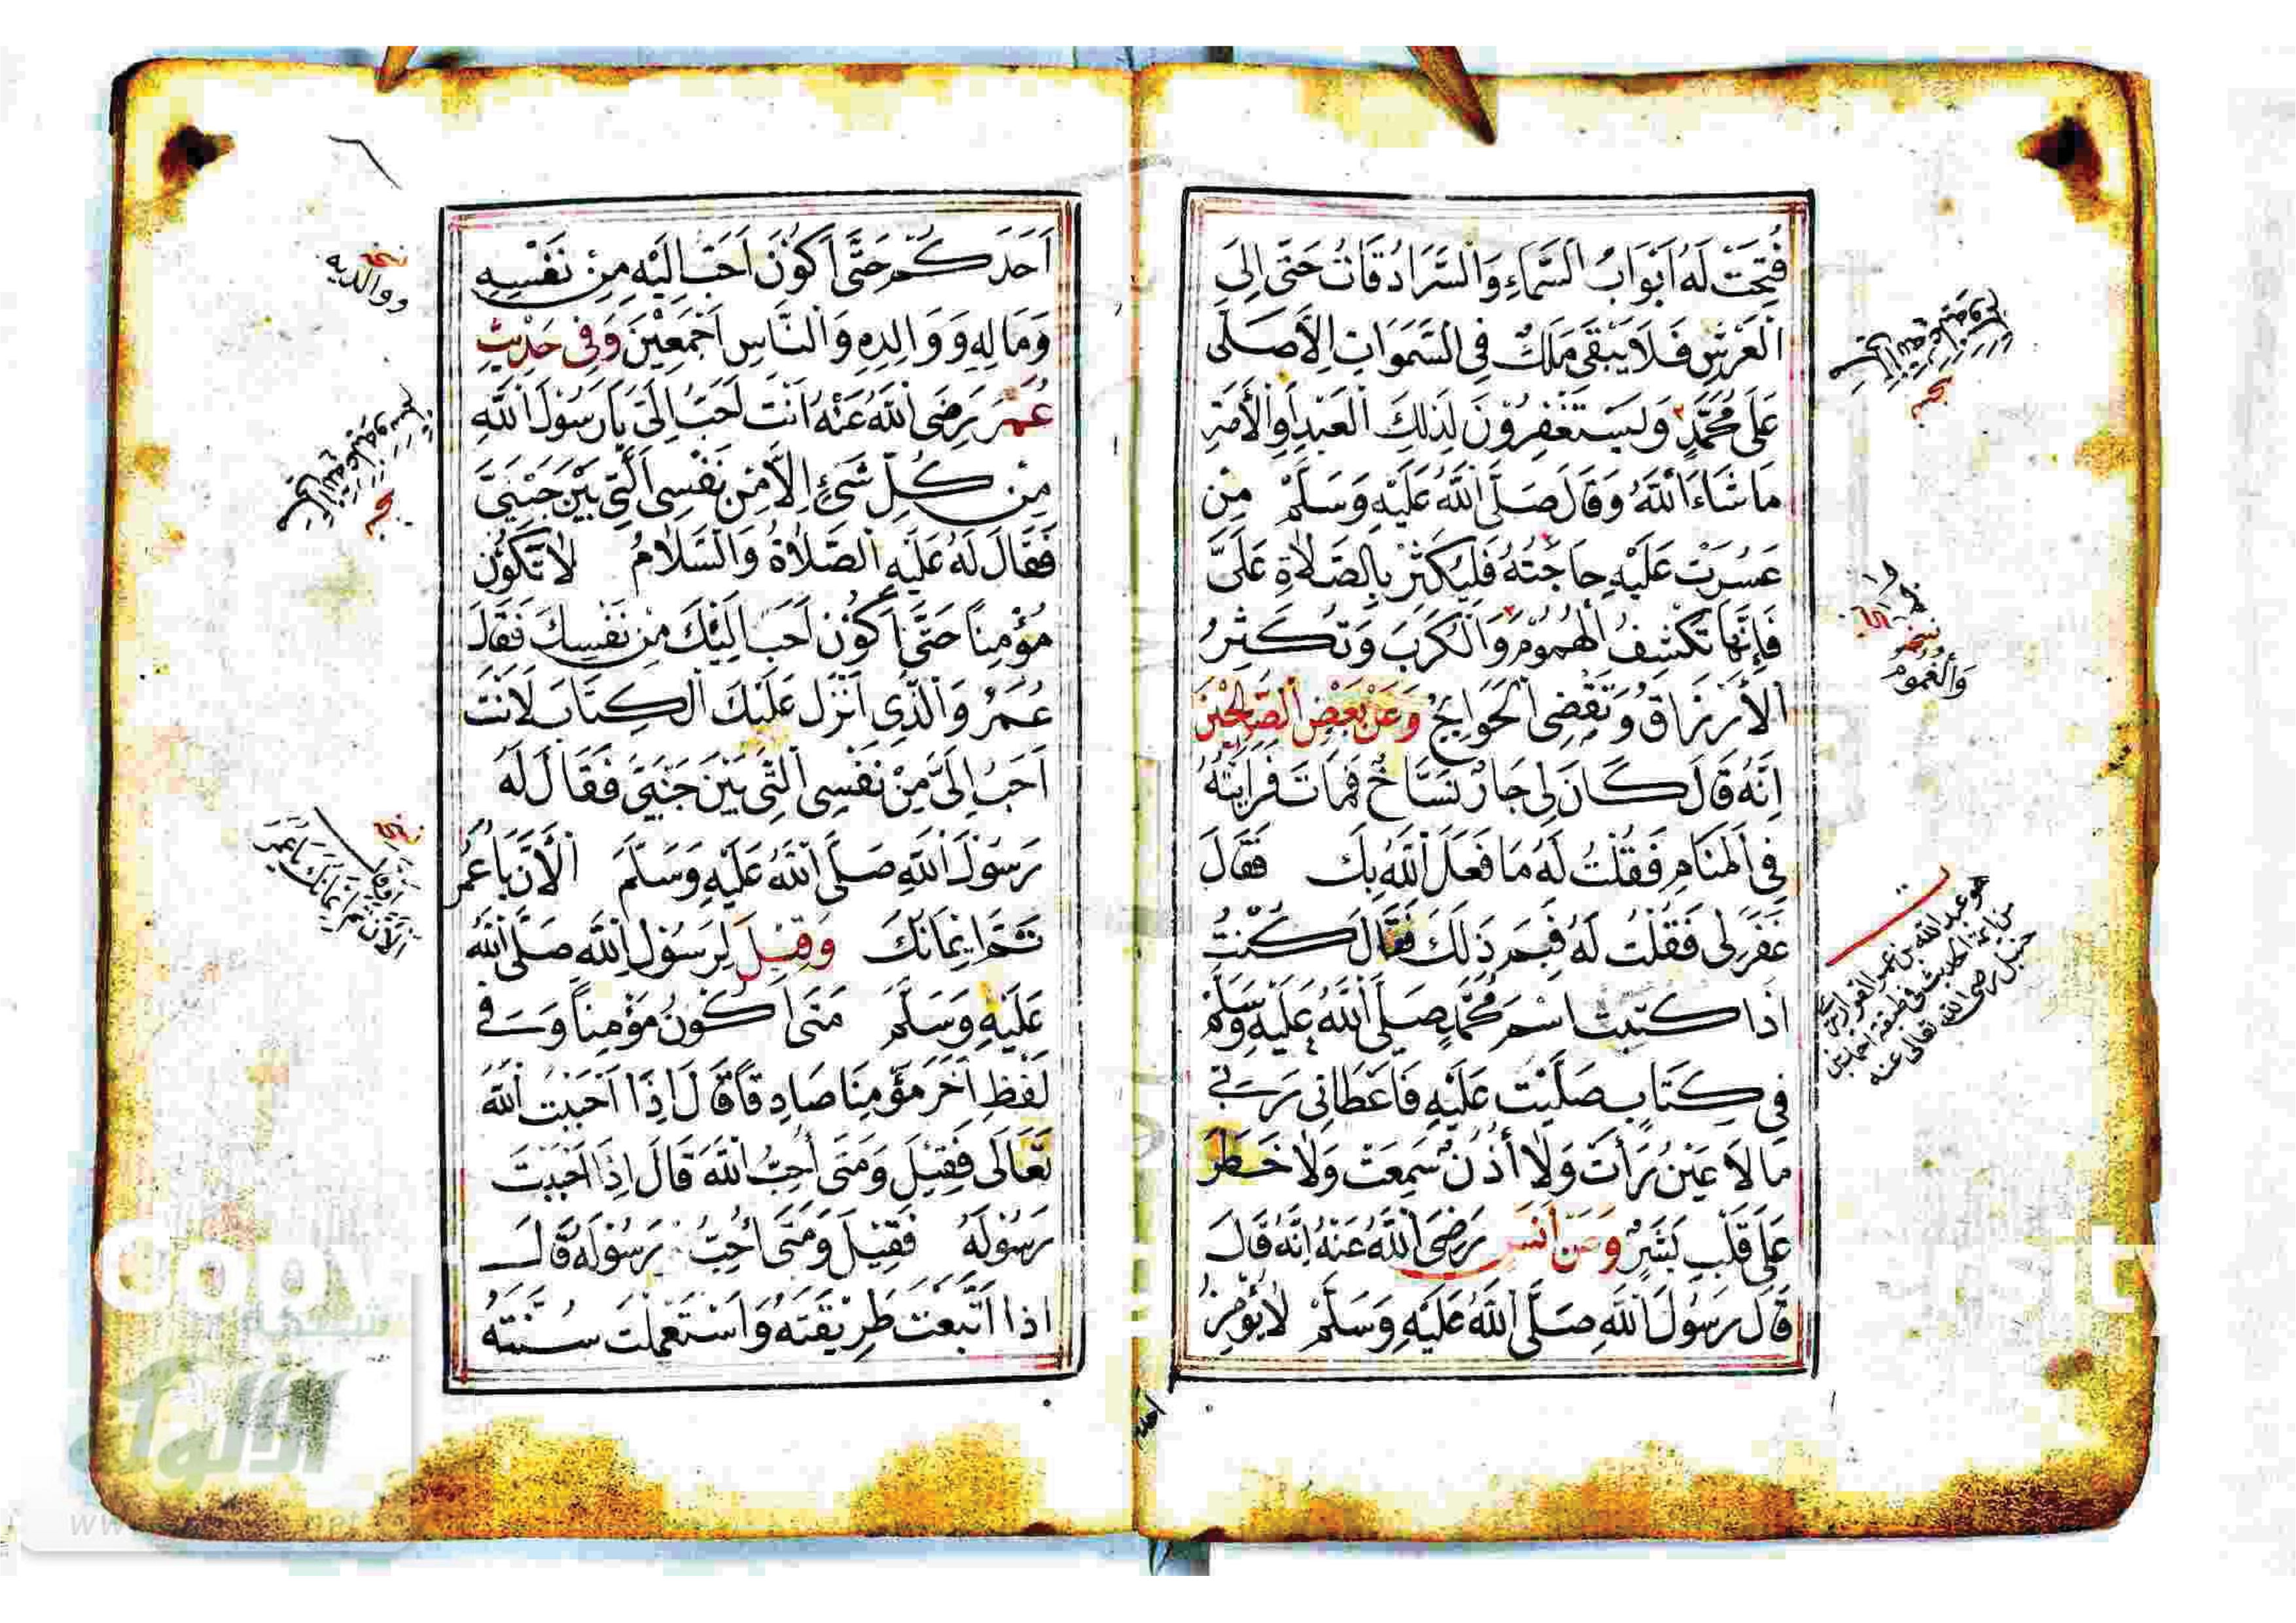 فُتِحَتْ لَهُ اَبْوَابُ السَّمَاءِ وَالسَّرَادُقَاتُ حَتّٰى اِلَى
الْعَرْشِ فَلَا يَبْقٰى مَلَكٌ فِى السَّمَوَاتِ اِلَّا صَلَّى
عَلَى مُحَمَّدٍ وَيَسْتَغْفِرُوْنَ لِذٰلِكَ الْعَبْدِ اَوِ الْأَمَةِ
مَا شَاءَ اللّٰهُ وَقَالَ صَلَّى اللّٰهُ عَلَيْهِ وَسَلَّمَ مَنْ
عَسُرَتْ عَلَيْهِ حَاجَتُهُ فَلْيُكْثِرْ بِالصَّلَاةِ عَلَىَّ
فَاِنَّهَا تَكْشِفُ الْهُمُوْمَ وَالْكُرَبَ وَتُكَثِّرُ
الْأَرْزَاقَ وَتَقْضِى الْحَوَايِجَ وَعَنْ بَعْضِ الصَّالِحِيْنَ
اَنَّهُ قَالَ كَانَ لِى جَارٌ نَسَّاخٌ فَمَاتَ فَرَاَيْتُهُ
فِى الْمَنَامِ فَقُلْتُ لَهُ مَا فَعَلَ اللّٰهُ بِكَ فَقَالَ
غَفَرَ لِى فَقُلْتُ لَهُ فَبِمَ ذٰلِكَ فَقَالَ كُنْتُ
اِذَا كَتَبْتُ اسْمَ مُحَمَّدٍ صَلَّى اللّٰهُ عَلَيْهِ وَسَلَّمَ
فِى كِتَابٍ صَلَّيْتُ عَلَيْهِ فَاَعْطَانِى رَبِّى
مَا لَا عَيْنٌ رَأَتْ وَلَا أُذُنٌ سَمِعَتْ وَلَا خَطَرَ
عَلَى قَلْبِ بَشَرٍ وَعَنْ اَنَسٍ رَضِىَ اللّٰهُ عَنْهُ اَنَّهُ قَالَ
قَالَ رَسُوْلُ اللّٰهِ صَلَّى اللّٰهُ عَلَيْهِ وَسَلَّمَ لَا يُؤْمِنُ
صحيح
نسخة
وَالْغُمُومَ
هو عبد الله بن عمر القواريرى
من ائمة الحديث فى طبقة احمد بن
حنبل رضى الله تعالى عنه
احدكم
اَحَدُكُمْ حَتَّى اَكُوْنَ اَحَبَّ اِلَيْهِ مِنْ نَفْسِهِ
وَمَالِهِ وَوَالِدِهِ وَالنَّاسِ اَجْمَعِيْنَ وَفِى حَدِيْثِ
عُمَرَ رَضِىَ اللّٰهُ عَنْهُ اَنْتَ اَحَبُّ اِلَىَّ يَا رَسُوْلَ اللّٰهِ
مِنْ كُلِّ شَىْءٍ اِلَّا مِنْ نَفْسِى الَّتِى بَيْنَ جَنْبَىَّ
فَقَالَ لَهُ عَلَيْهِ الصَّلَاةُ وَالسَّلَامُ لَا تَكُوْنُ
مُؤْمِنًا حَتَّى اَكُوْنَ اَحَبَّ اِلَيْكَ مِنْ نَفْسِكَ فَقَالَ
عُمَرُ وَالَّذِى اَنْزَلَ عَلَيْكَ الْكِتَابَ لَاَنْتَ
اَحَبُّ اِلَىَّ مِنْ نَفْسِى الَّتِى بَيْنَ جَنْبَىَّ فَقَالَ لَهُ
رَسُوْلُ اللّٰهِ صَلَّى اللّٰهُ عَلَيْهِ وَسَلَّمَ اَلْأٰنَ يَا عُمَرُ
تَمَّ اِيْمَانُكَ وَقِيْلَ لِرَسُوْلِ اللّٰهِ صَلَّى اللّٰهُ
عَلَيْهِ وَسَلَّمَ مَتَى اَكُوْنُ مُؤْمِنًا وَفِى
لَفْظٍ اٰخَرَ مُؤْمِنًا صَادِقًا قَالَ اِذَا اَحْبَبْتَ اللّٰهَ
تَعَالَى فَقِيْلَ وَمَتَى اُحِبُّ اللّٰهَ قَالَ اِذَا اَحْبَبْتَ
رَسُوْلَهُ فَقِيْلَ وَمَتَى اُحِبُّ رَسُوْلَهُ قَالَ
اِذَا اتَّبَعْتَ طَرِيْقَتَهُ وَاسْتَعْمَلْتَ سُنَّتَهُ
نسخة
ووالديه
صحيح
اَلْأٰنَ تَمَّ اِيمَانُكَ يَا عُمَرُ
شبكة
الألوكة